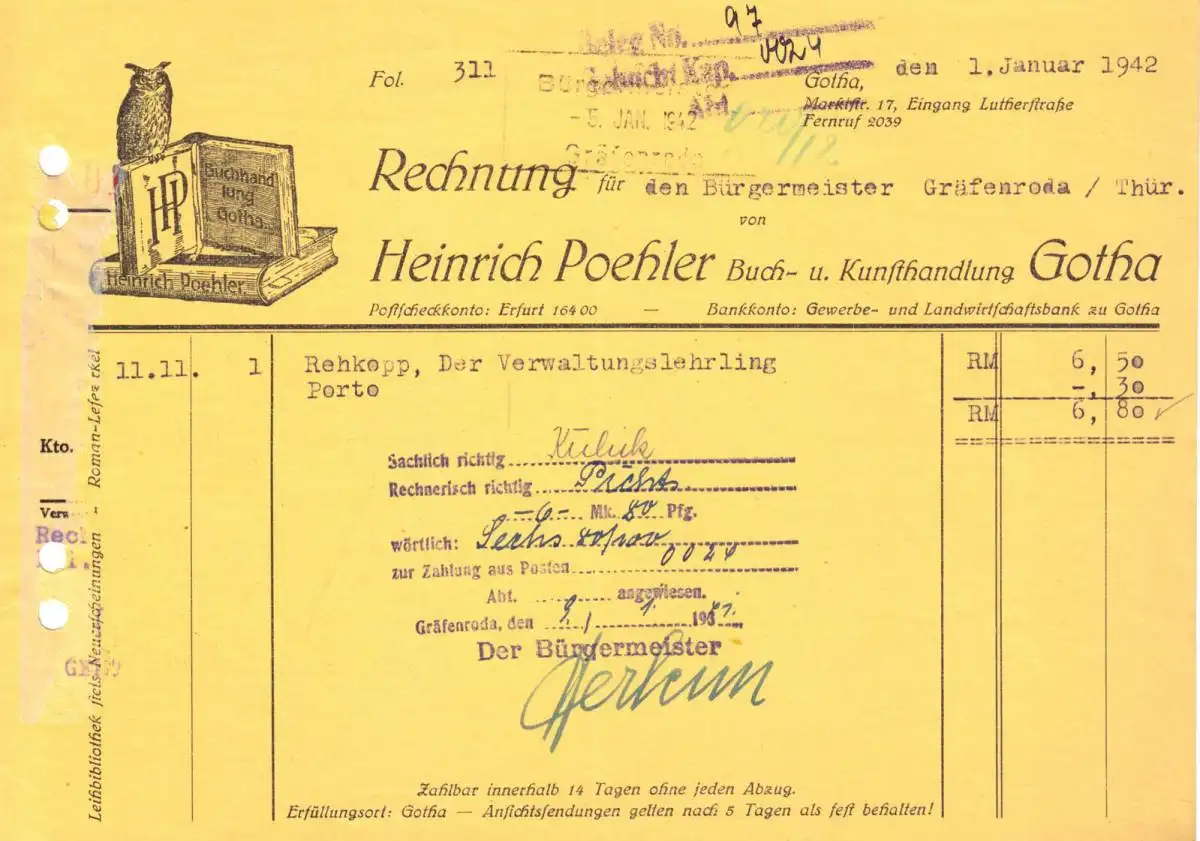 Beleg No. 97
Abschnitt Kap. 0024
Fol. 311
Gotha, den 1. Januar 1942
Marktstr. 17, Eingang Lutherstraße
Fernruf 2039
- 5. JAN. 1942
Gräfenroda
HP
Buchhand
lung
Gotha
Heinrich Poehler
Rechnung für den Bürgermeister Gräfenroda / Thür.
von
Heinrich Poehler Buch- u. Kunsthandlung Gotha
Postscheckkonto: Erfurt 16400 — Bankkonto: Gewerbe- und Landwirtschaftsbank zu Gotha
11.11. 1 Rehkopp, Der Verwaltungslehrling RM 6, 50
Porto -, 30
RM 6, 80
Kto.
Sachlich richtig
Rechnerisch richtig
-6- Mk. 80 Pfg.
wörtlich: Sechs 80/100
zur Zahlung aus Posten 0024
Abt. angewiesen.
Gräfenroda, den 9. / 1. 1942.
Der Bürgermeister
Leihbibliothek stets Neuerscheinungen - Roman-Lesezirkel
Zahlbar innerhalb 14 Tagen ohne jeden Abzug.
Erfüllungsort: Gotha — Ansichtssendungen gelten nach 5 Tagen als fest behalten!